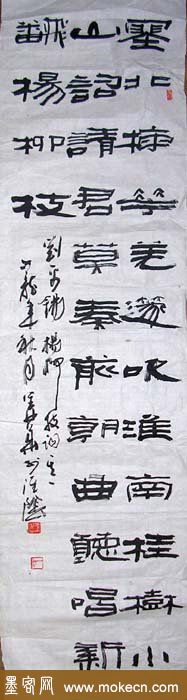 塞北梅華羌篴吹淮南桂樹小
山詞請君莫奏前朝曲聽唱新
飜楊柳枝
劉禹錫楊柳枝詞之一
年秋月
墨客网
www.mokecn.com